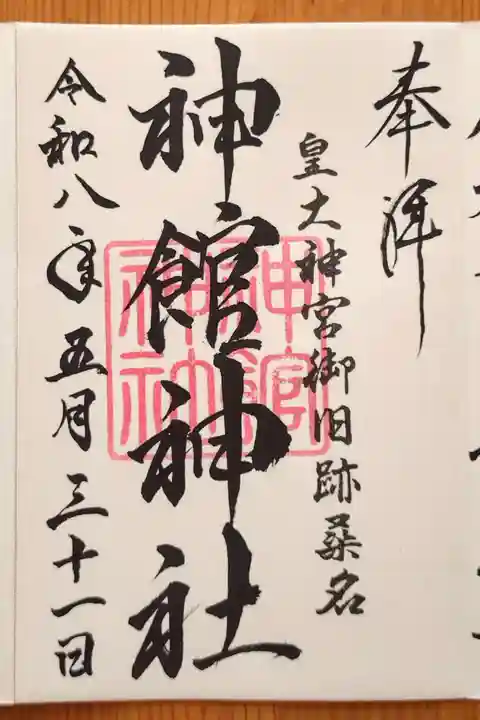 奉拝
皇大神宮御旧跡桑名
神館神社
神館神社
令和八年五月三十一日